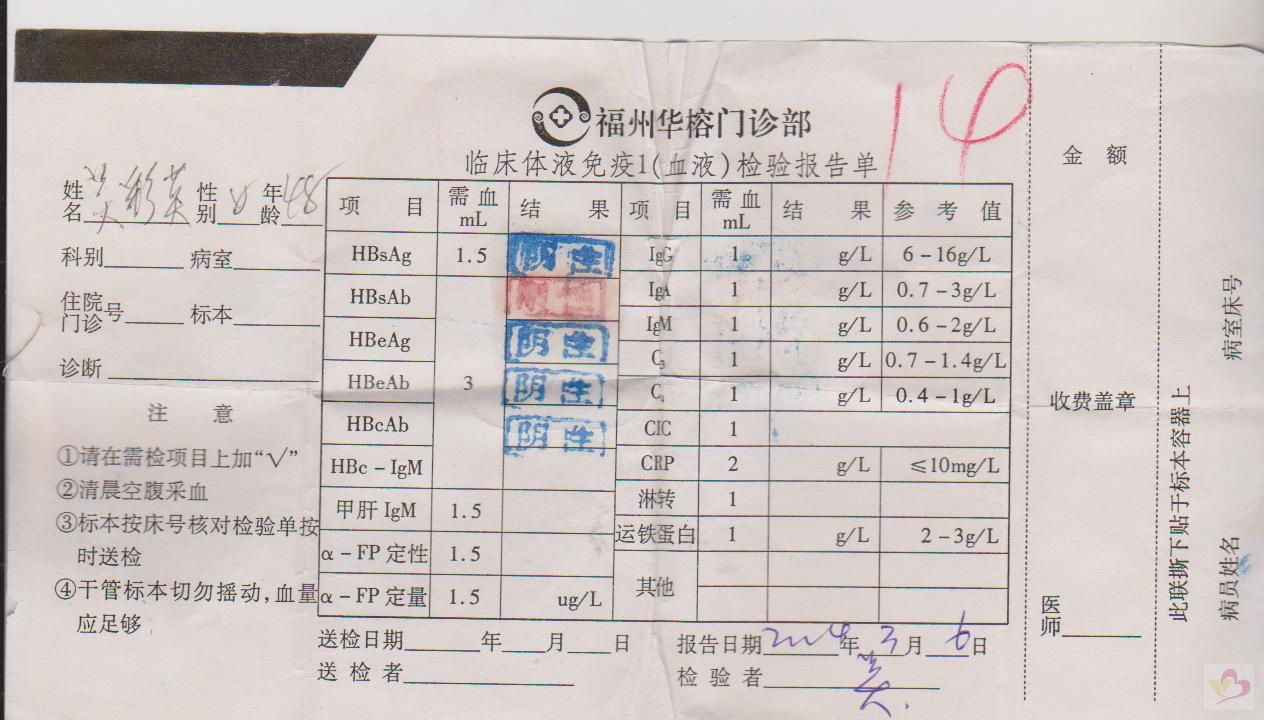 14
福州华榕门诊部
临床体液免疫1(血液)检验报告单
姓名 彩英 性别 女 年龄 48
科别 病室
住院门诊号 标本
诊断
注 意
①请在需检项目上加“√”
②清晨空腹采血
③标本按床号核对检验单按
时送检
④干管标本切勿摇动,血量
应足够
项 目 需血mL 结 果 项 目 需血mL 结 果 参考值
HBsAg 1.5 阴性 IgG 1 g/L 6-16g/L
HBsAb IgA 1 g/L 0.7-3g/L
HBeAg 阴性 IgM 1 g/L 0.6-2g/L
HBeAb 3 阴性 C₃ 1 g/L 0.7-1.4g/L
HBcAb 阴性 C₄ 1 g/L 0.4-1g/L
CIC 1
HBc-IgM CRP 2 g/L ≤10mg/L
甲肝IgM 1.5 淋转 1
α-FP定性 1.5 运铁蛋白 1 g/L 2-3g/L
α-FP定量 1.5 ug/L 其他
送检日期 年 月 日 报告日期 2014年3月6日
送检者 检验者
金 额
收费盖章
医师
此联撕下贴于标本容器上
病室床号
病员姓名